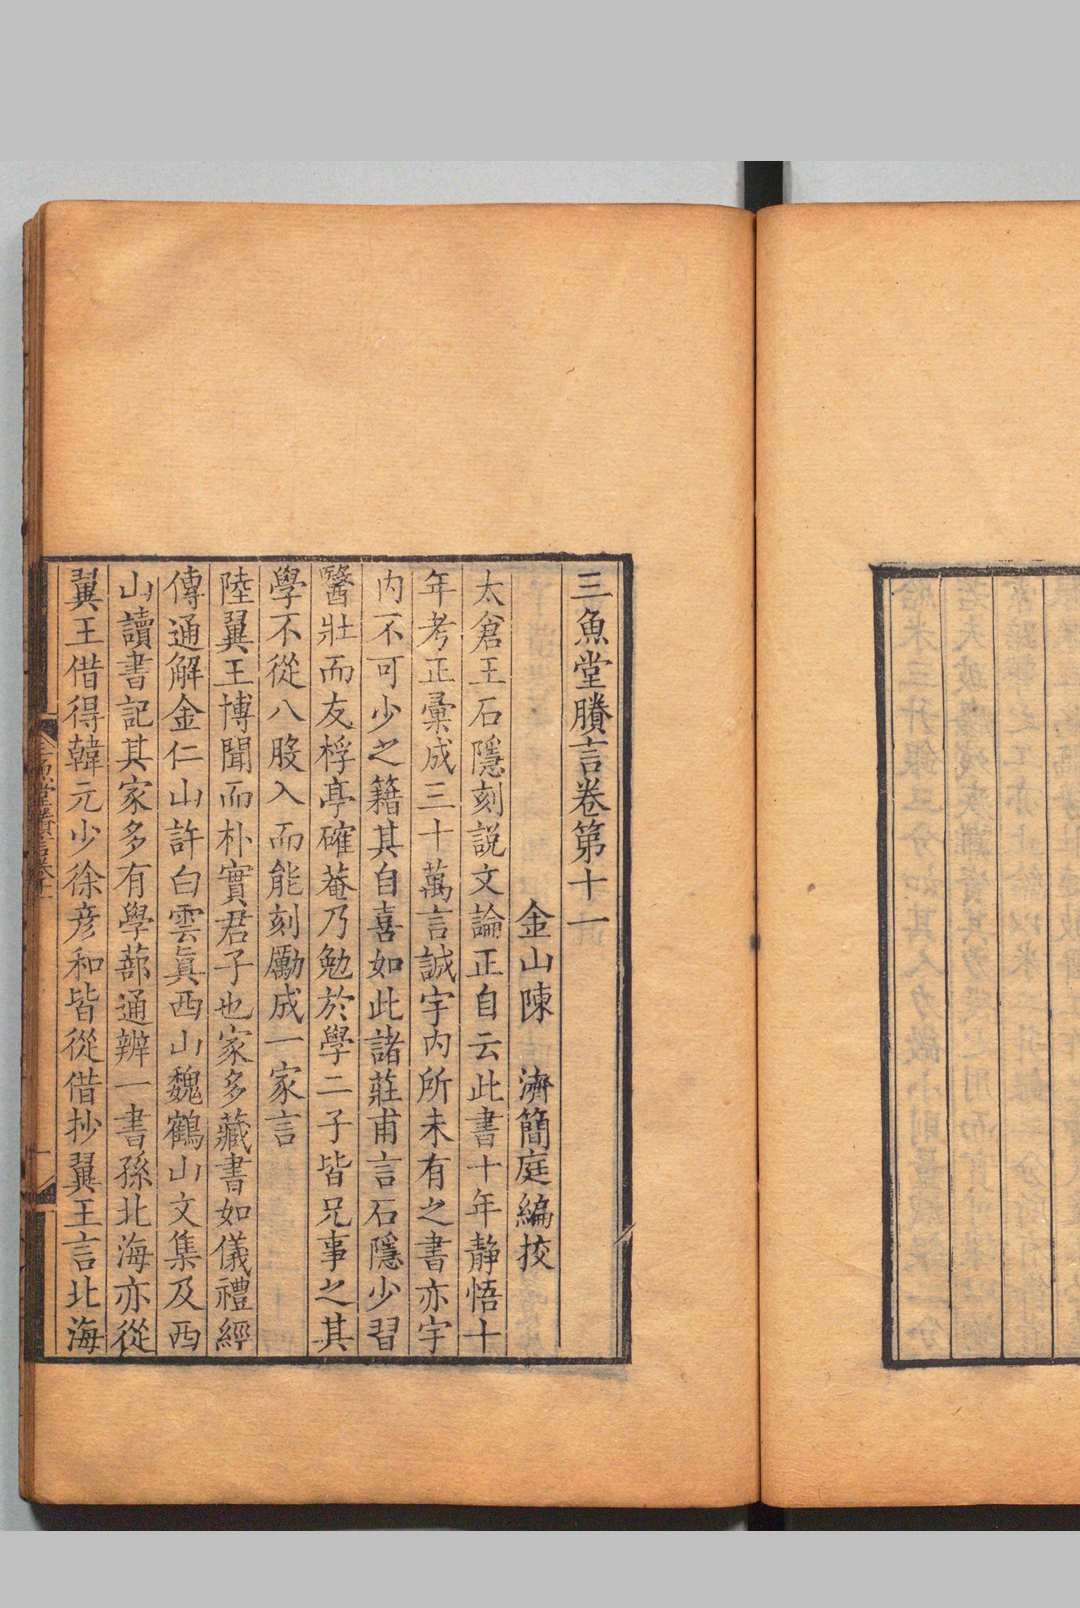 三魚堂賸言卷第十一
金山陳　濟簡庭編挍
太倉王石隱刻説文論正自云此書十年靜悟十
年考正彙成三十萬言誠宇内所未有之書亦宇
内不可少之籍其自喜如此諸莊甫言石隱少習
醫壯而友桴亭確菴乃勉於學二子皆兄事之其
學不從八股入而能刻勵成一家言
陸翼王博聞而朴實君子也家多藏書如儀禮經
傳通解金仁山許白雲眞西山魏鶴山文集及西
山讀書記其家多有學蔀通辨一書孫北海亦從
翼王借得韓元少徐彦和皆從借抄翼王言北海
三魚堂賸言卷十一
一